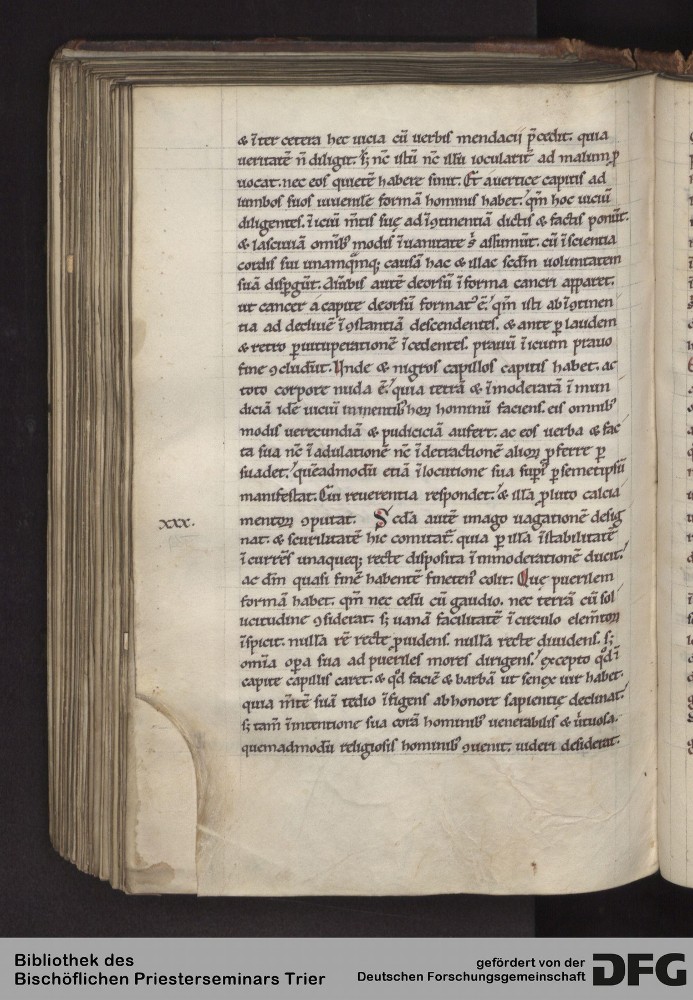 & int̄ cetera hec uicia cū uerbis mendacij p̄cedit. quia
ueritatē n̄ diligit. sꝫ nc̄ istū nc̄ illū ioculatīt ad malum ꝓ
uocat. nec eos quietē habere sinit. Et a uertice capitis ad
lumbos suos iuuenilē formā hominis habet. qm̄ hoc uiciū
diligentes. ī iciū m̄tis suę ad ī9tinentiā dictis & factis ponūt.
& lasciuiā omībꝫ modis ī uanitate s̄ assumūt. cū ī scientia
cordis sui unamq̄mqꝫ causā hac & illac scd̄m uoluntatem
suā disꝑgūt. A lūbis autē deorsū ī forma cancri apparet.
ut cancer a capite deorsū format᾽ ē. qm̄ isti ab ī9tinen
tia ad decliuiē ī9stantiā descendentes. & ante ꝑ laudem
& retro ꝑ uituperationē īcedentes. prauū īicium prauo
fine 9cludūt. Unde & nigros capillos capitis habet. ac
toto corpore nuda ē. quia terrā & īmoderatā īmun
diciā idē uiciū in mentibꝫ hoꝝ hominū faciens. eis omnibꝫ
modis uerecundiā & pudiciciā aufert. ac eos uerba & fac
ta sua nc̄ ī adulationē nc̄ ī detractionē alioꝝ ꝓferre ꝑ
suadet. quēadmodū etiā ī locutione sua suꝑi᾽ ꝑ semetipsū
manifestat. Cui reuerentia respondet. & illā ꝓ luto calcia
mentoꝝ 9putat. Scd̄a autē imago uagationē desig
nat. & scurilitatē hic comitat᾽. quia ꝑ illā īstabilitatē
ī currēs unaqueqꝫ recte disposita ī immoderationē ducit.
ac dm̄ quasi finē habentē fineten᾽ colit. Que puerilem
formā habet. qm̄ nec celū cū gaudio. nec terrā cū sol
licitudine 9siderat. sꝫ uanā facilitatē ī circulo elem̄toꝝ
īspicit. nullā rē recte ꝓuidens. nullā recte diuidens. sꝫ
om̄ia oꝑa sua ad pueriles mores dirigens. excepto qd̄ ī
capite capillis caret. & qd̄ faciē & barbā ut senex uir habet.
quia m̄tē suā tedio īfigens ab honore sapientię declinat.
sꝫ tam̄ ī intentione sua corā hominibꝫ uenerabilis & uirtuosa.
quemadmodū religiosis hominibꝫ 9uenit. uideri desiderat.
xxx.
Bibliothek des
Bischöflichen Priesterseminars Trier
gefördert von der
Deutschen Forschungsgemeinschaft
DFG